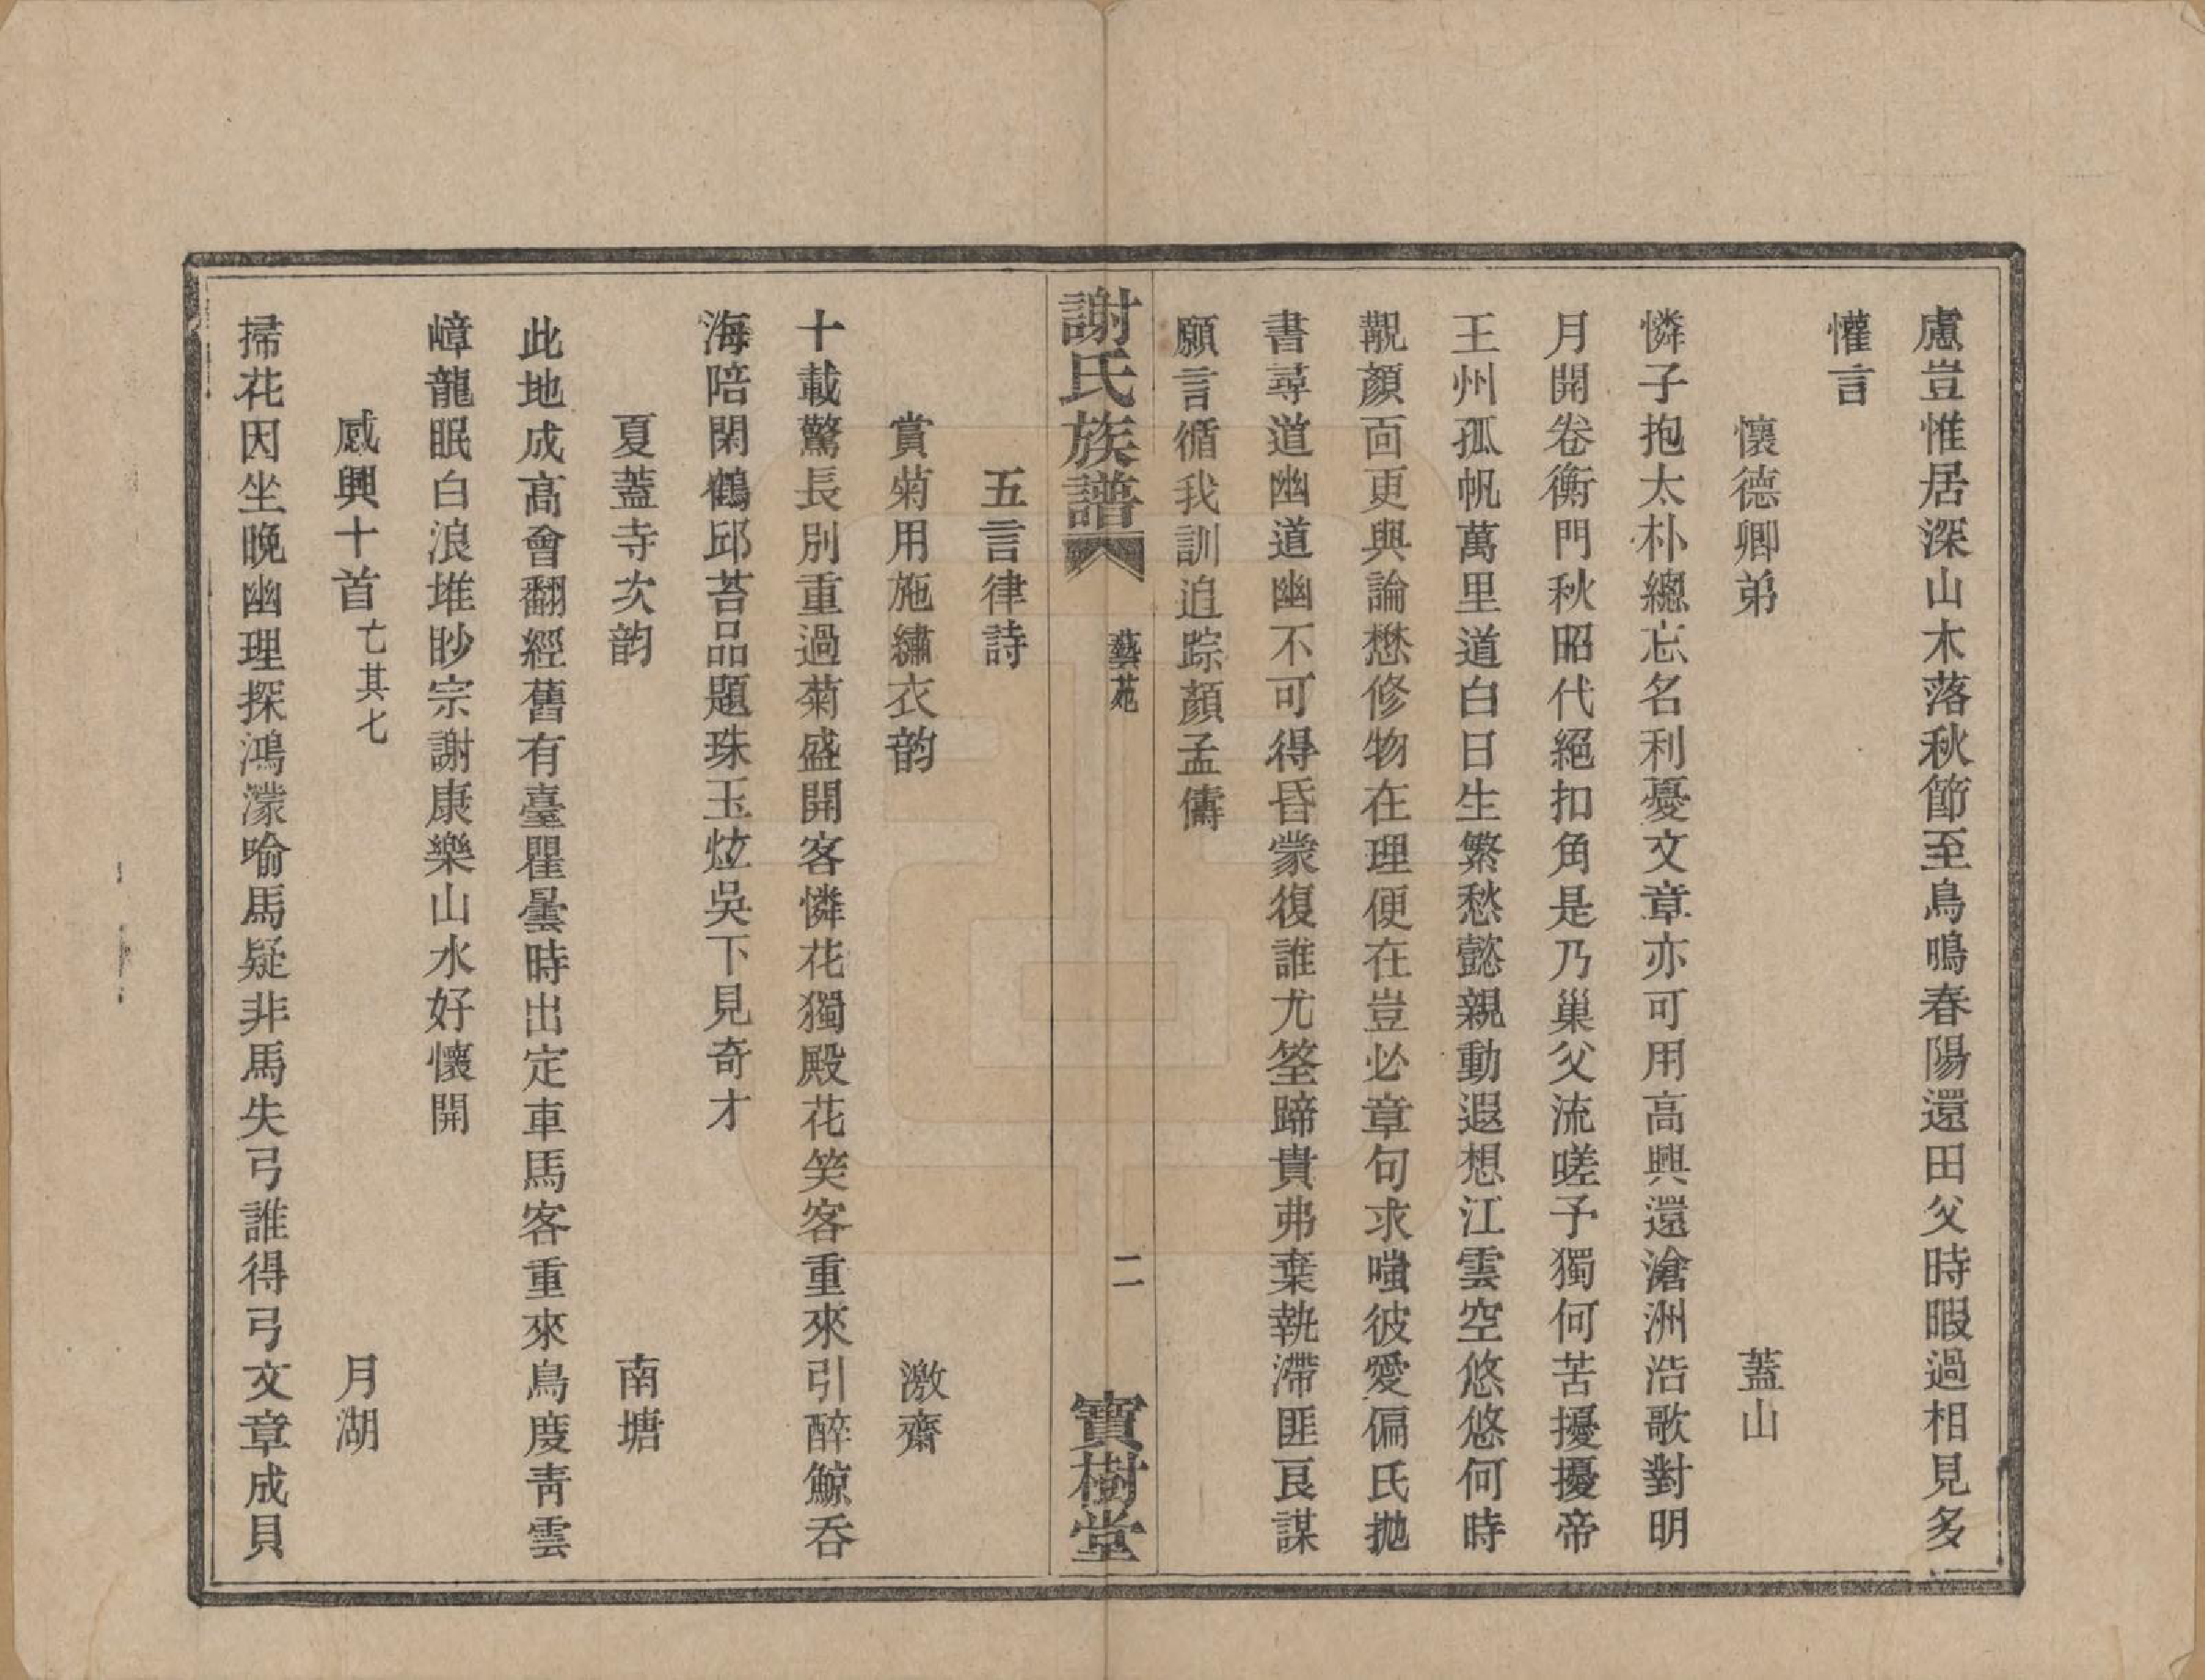 慮豈惟居深山木落秋節至鳥鳴春陽還田父時暇過相見多
懽言
懷德卿弟　蓋山
憐子抱太朴總忘名利憂文章亦可用高興還滄洲浩歌對明
月開卷衡門秋昭代絕扣角是乃巢父流嗟予獨何苦擾擾帝
王州孤帆萬里道白日生繁愁懿親動遐想江雲空悠悠何時
覯顏面更與論懋修物在理便在豈必章句求嗤彼愛偏氏拋
書尋道幽道幽不可得昏蒙復誰尤筌蹄貴弗棄執滯匪良謀
願言循我訓追踪顏孟儔
謝氏族譜　藝苑　二　寶樹堂
五言律詩
賞菊用施繡衣韵　激齋
十載驚長別重過菊盛開客憐花獨殿花笑客重來引醉鯨吞
海陪閑鶴邱苔品題珠玉炫吳下見奇才
夏蓋寺次韵　南塘
此地成高會翻經舊有臺瞿曇時出定車馬客重來鳥度靑雲
嶂龍眠白浪堆眇宗謝康樂山水好懷開
感興十首亡其七　月湖
掃花因坐晚幽理探鴻濛喻馬疑非馬失弓誰得弓文章成貝